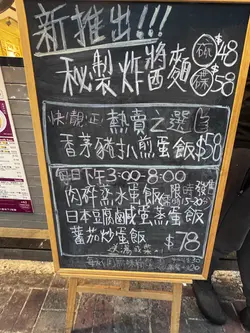 新推出!!!
秘製炸醬麵
$48
碟$58
熱賣之選
香茅豬扒煎蛋飯$58
每日下午3:00-8:00
肉碎蒸水蛋飯 限時發售
日本豆腐鹹蛋蒸蛋飯
蕃茄炒蛋飯 $78